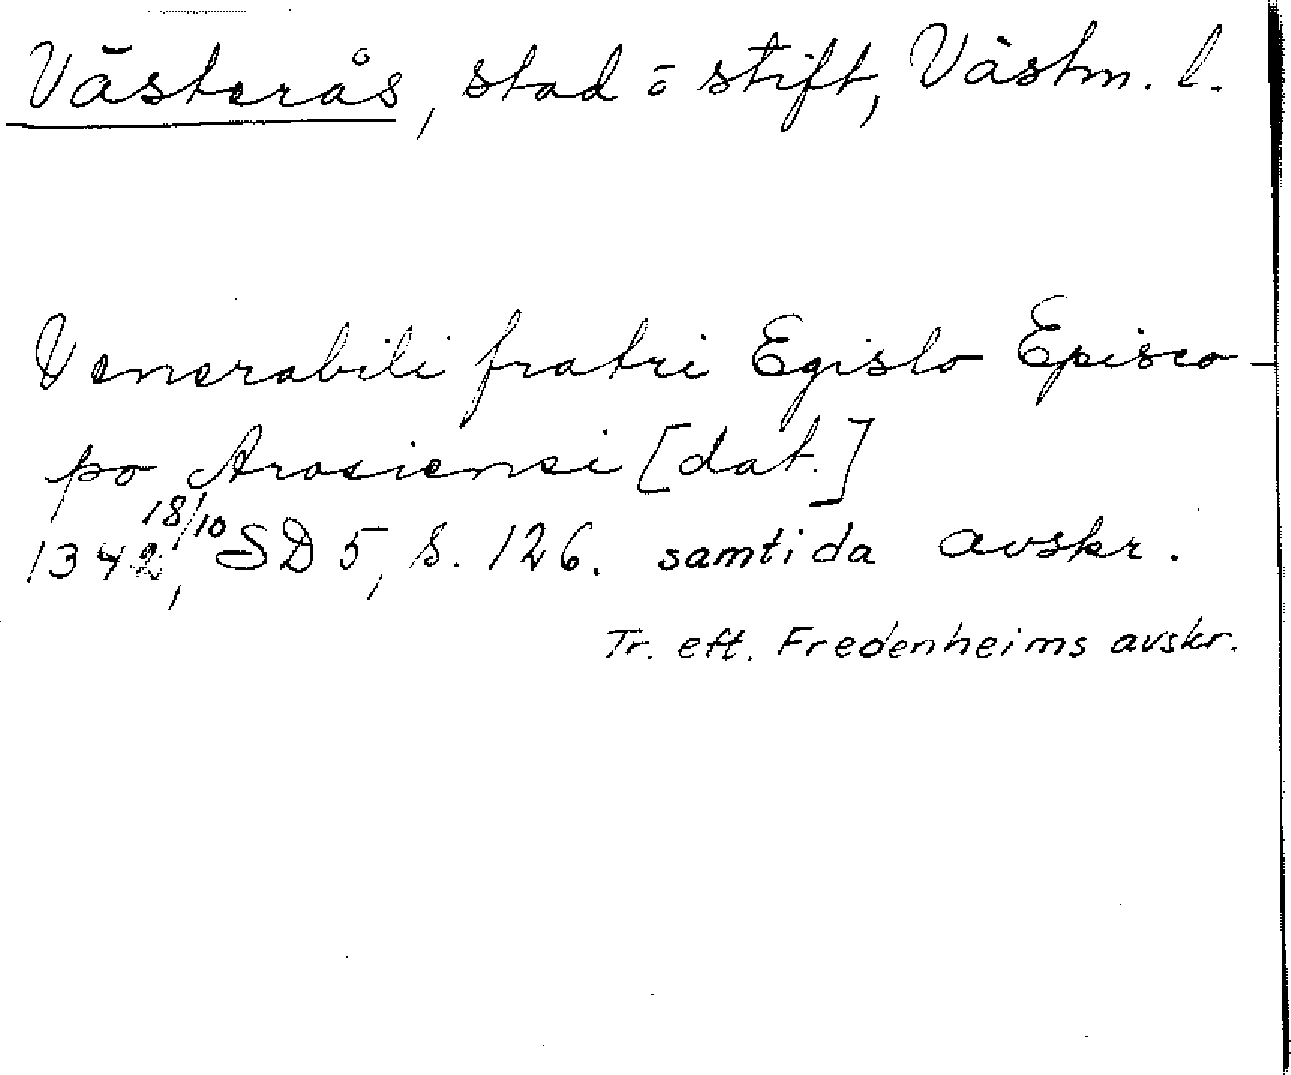 Västerås, stad o stift, Västm. l.
Venerabili fratri Egislo Episco-
po Arosiensi [dat.]
1342 18/10, SD 5, s. 126. samtida avskr.
Tr. eft. Fredenheims avskr.